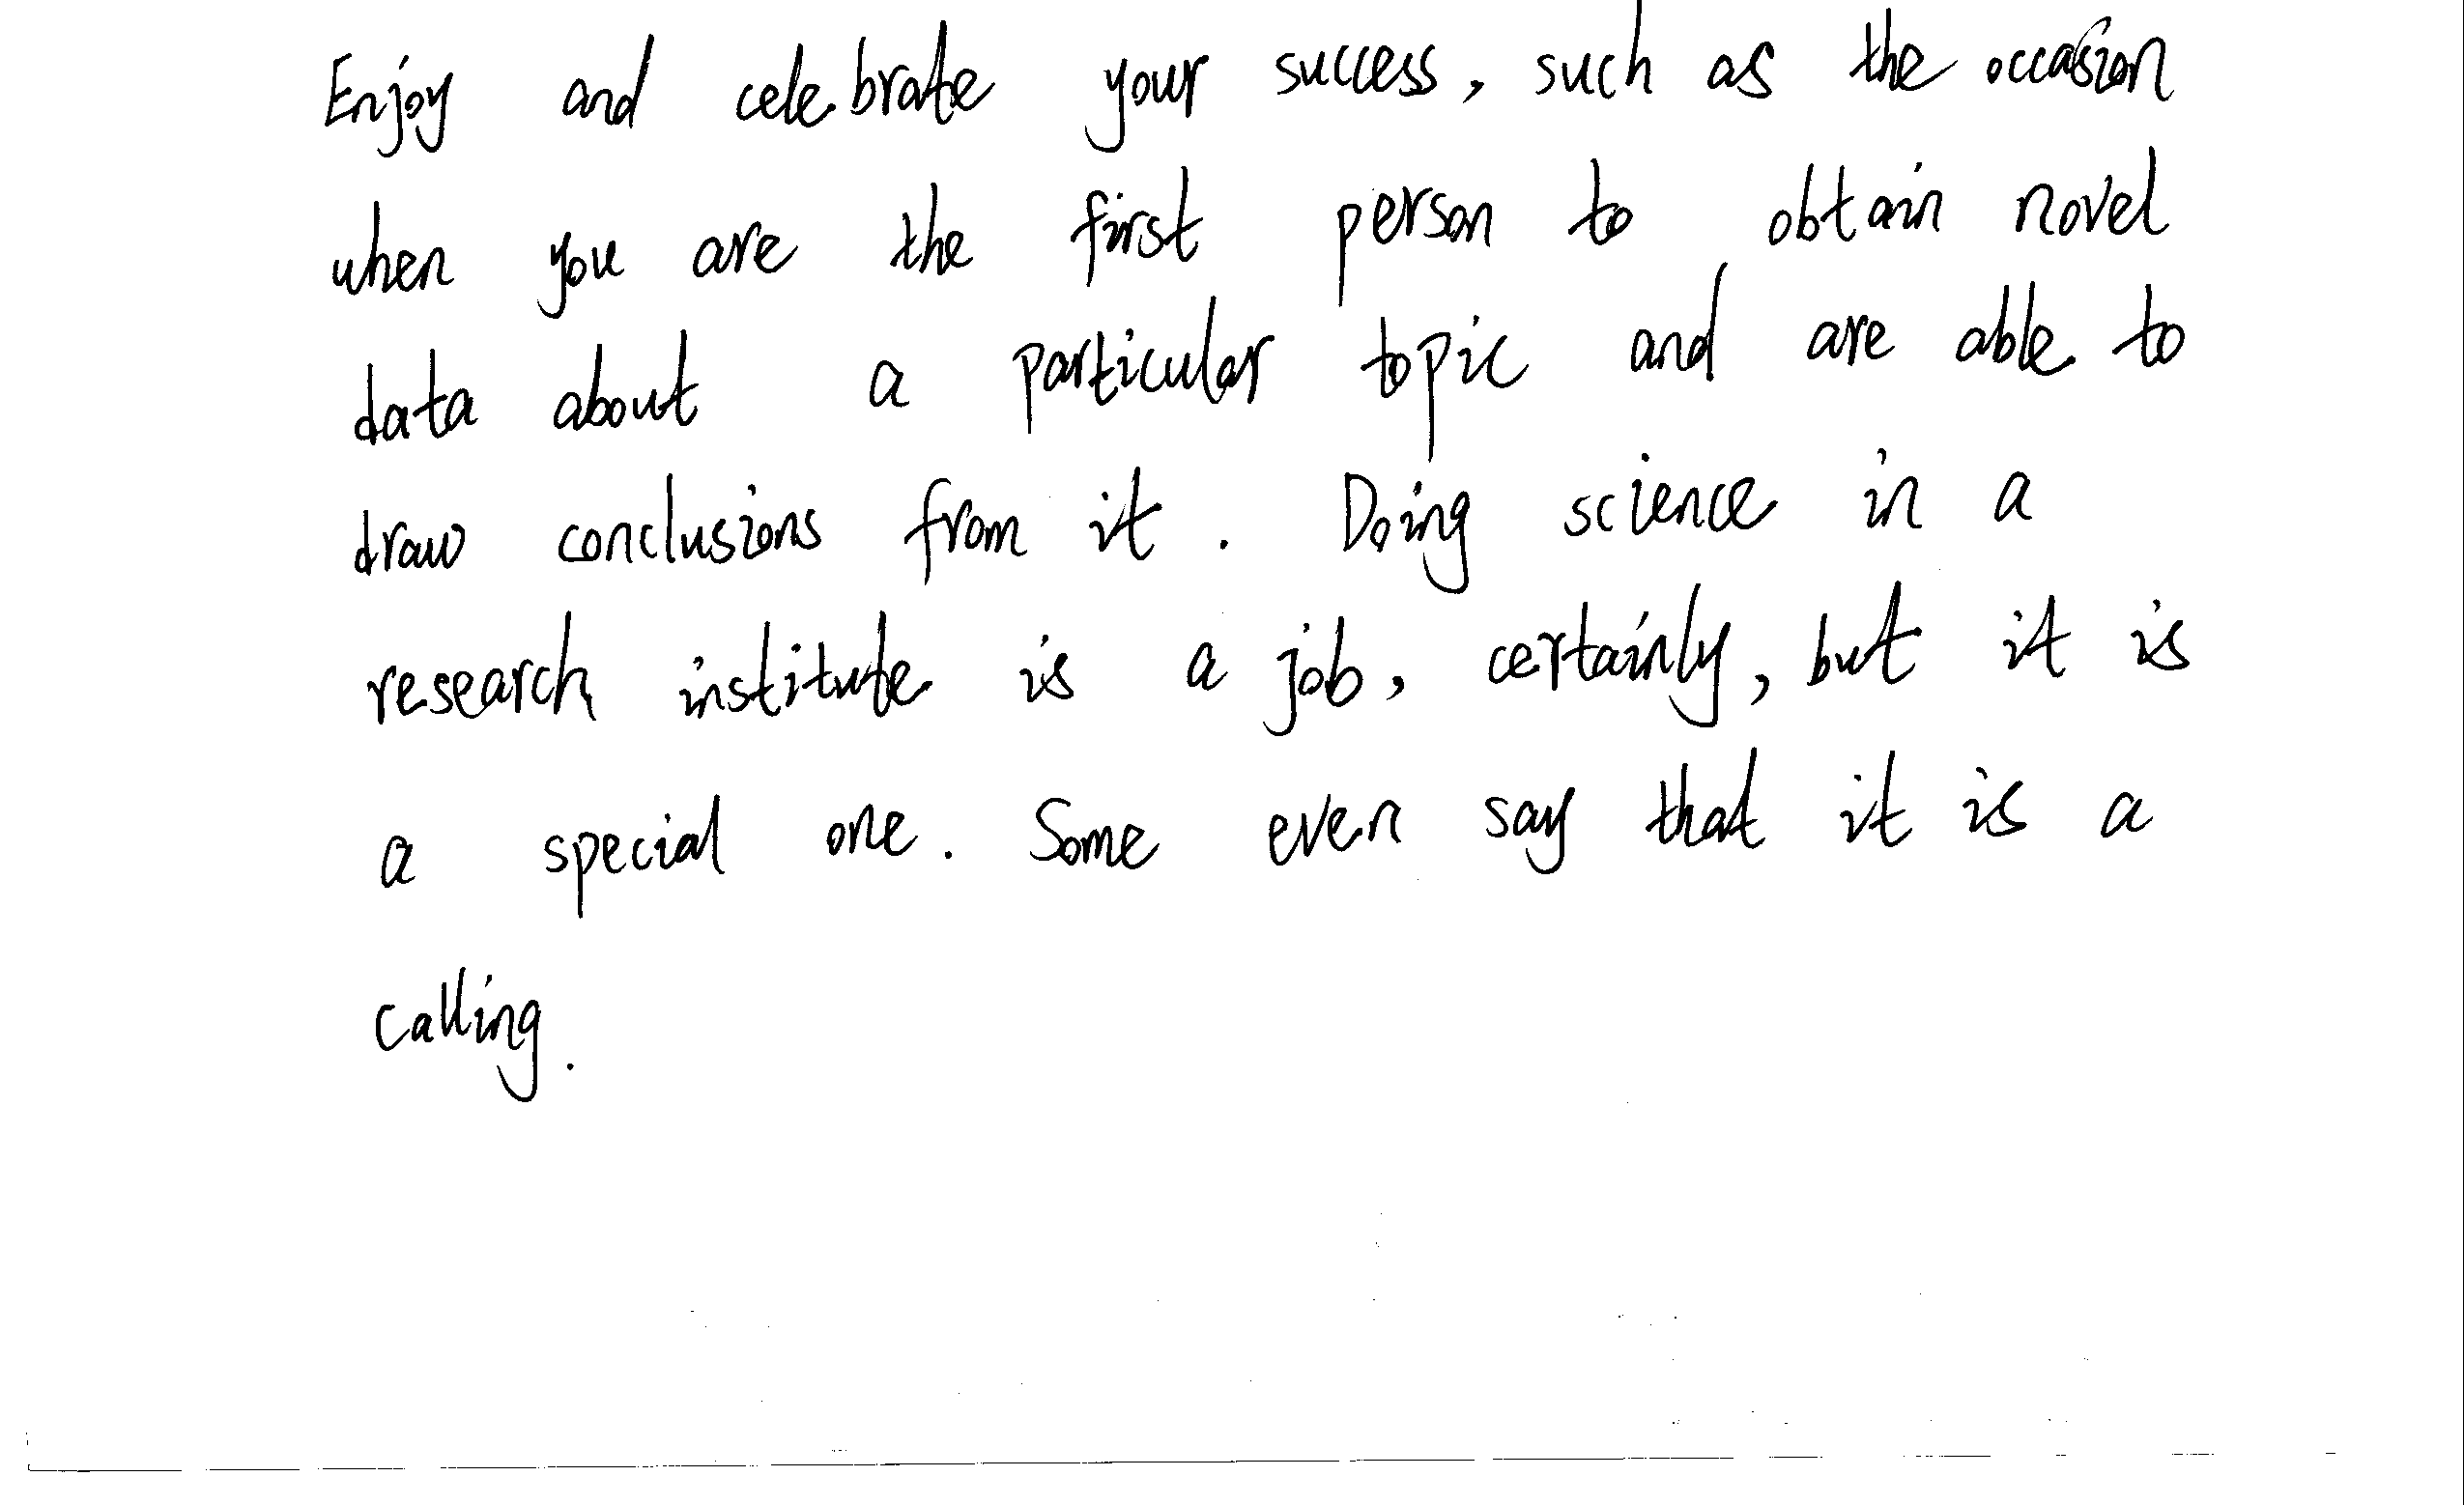 Enjoy and celebrate your success, such as the occasion
when you are the first person to obtain novel
data about a particular topic and are able to
draw conclusions from it. Doing science in a
research institute is a job, certainly, but it is
a special one. Some even say that it is a
calling.